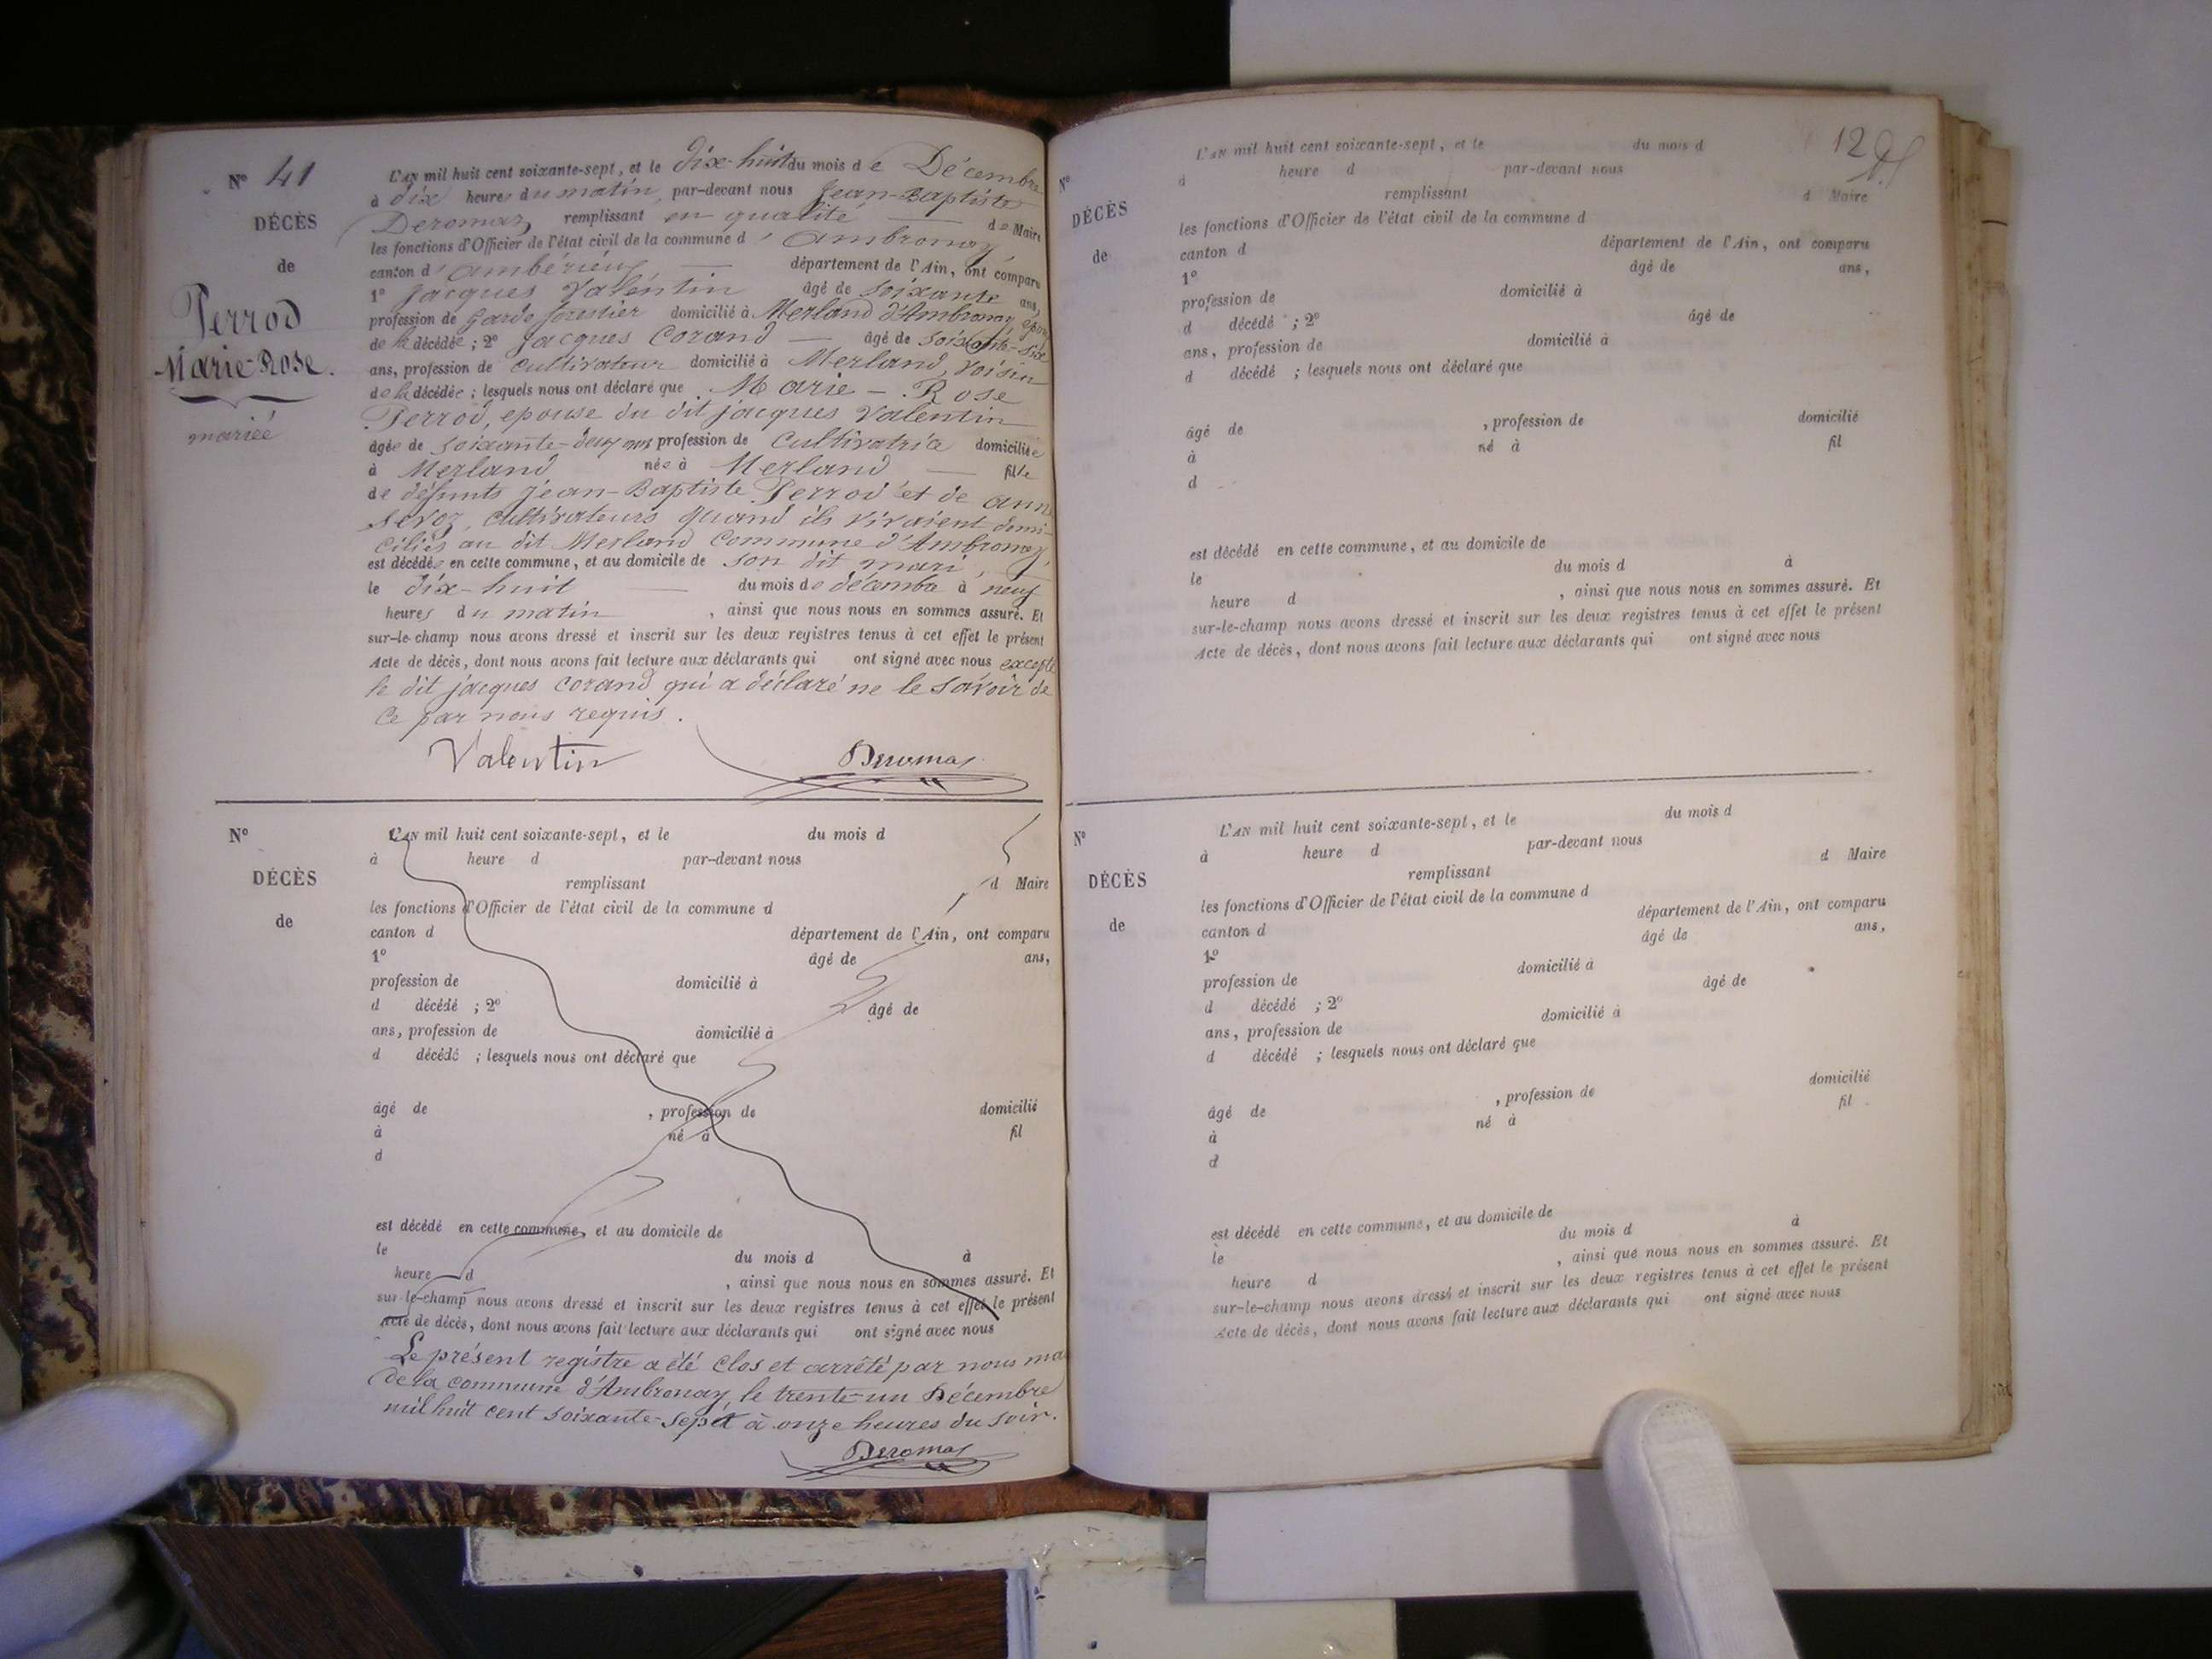 Nº 41
DÉCÈS
de
Perrod
Marie-Rose.
mariée
L'AN mil huit cent soixante-sept, et le dix-huit du mois de Décembre
à dix heures du matin, par-devant nous Jean-Baptiste
Deromas, remplissant en qualité de Maire
les fonctions d'Officier de l'état civil de la commune d'Ambronay
canton d'ambérieux département de l'Ain, ont comparu
1º Jacques Valentin âgé de soixante ans,
profession de garde forestier domicilié à Merland d'Ambronay, époux
de la décédée ; 2º Jacques Corand âgé de soixante-six
ans, profession de cultivateur domicilié à Merland, voisin
de la décédée ; lesquels nous ont déclaré que Marie-Rose
Perrod, epouse du dit jacques Valentin
âgée de soixante-deux ans profession de Cultivatrice domiciliée
à Merland née à Merland fille
de défunts Jean-Baptiste Perrod et de anne
Servoz, cultivateurs quand ils vivaient domi-
ciliés au dit Merland Commune d'Ambronay,
est décédée en cette commune, et au domicile de son dit mari,
le dix-huit du mois de décembre à neuf
heures du matin, ainsi que nous nous en sommes assuré. Et
sur-le-champ nous avons dressé et inscrit sur les deux registres tenus à cet effet le présent
Acte de décès, dont nous avons fait lecture aux déclarants qui ont signé avec nous excepté
le dit jacques corand qui a déclaré ne le savoir de
ce par nous requis.
Valentin Deromas
Nº
DÉCÈS
de
L'AN mil huit cent soixante-sept, et le du mois d
à heure d par-devant nous
remplissant d Maire
les fonctions d'Officier de l'état civil de la commune d
canton d département de l'Ain, ont comparu
1º âgé de ans,
profession de domicilié à
d décédé ; 2º âgé de
ans, profession de domicilié à
d décédé ; lesquels nous ont déclaré que
âgé de , profession de domicilié
à né à fil
d
est décédé en cette commune, et au domicile de
le du mois d à
heure d , ainsi que nous nous en sommes assuré. Et
sur-le-champ nous avons dressé et inscrit sur les deux registres tenus à cet effet le présent
Acte de décès, dont nous avons fait lecture aux déclarants qui ont signé avec nous
Le présent registre a été clos et arrêté par nous
de la commune d'Ambronay, le trente-un Décembre
mil huit cent soixante-sept à onze heures du soir.
Deromas
129
Nº
DÉCÈS
de
L'AN mil huit cent soixante-sept, et le du mois d
à heure d par-devant nous
remplissant d Maire
les fonctions d'Officier de l'état civil de la commune d
canton d département de l'Ain, ont comparu
1º âgé de ans,
profession de domicilié à
d décédé ; 2º âgé de
ans, profession de domicilié à
d décédé ; lesquels nous ont déclaré que
âgé de , profession de domicilié
à né à fil
d
est décédé en cette commune, et au domicile de
le du mois d à
heure d , ainsi que nous nous en sommes assuré. Et
sur-le-champ nous avons dressé et inscrit sur les deux registres tenus à cet effet le présent
Acte de décès, dont nous avons fait lecture aux déclarants qui ont signé avec nous
Nº
DÉCÈS
de
L'AN mil huit cent soixante-sept, et le du mois d
à heure d par-devant nous
remplissant d Maire
les fonctions d'Officier de l'état civil de la commune d
canton d département de l'Ain, ont comparu
1º âgé de ans,
profession de domicilié à
d décédé ; 2º âgé de
ans, profession de domicilié à
d décédé ; lesquels nous ont déclaré que
âgé de , profession de domicilié
à né à fil
d
est décédé en cette commune, et au domicile de
le du mois d à
heure d , ainsi que nous nous en sommes assuré. Et
sur-le-champ nous avons dressé et inscrit sur les deux registres tenus à cet effet le présent
Acte de décès, dont nous avons fait lecture aux déclarants qui ont signé avec nous